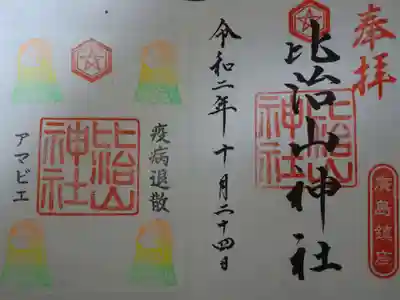 奉拝
廣島鎮座
比治山神社
比治山神社
令和二年十月二十四日
疫病退散
比治山神社
アマビエ